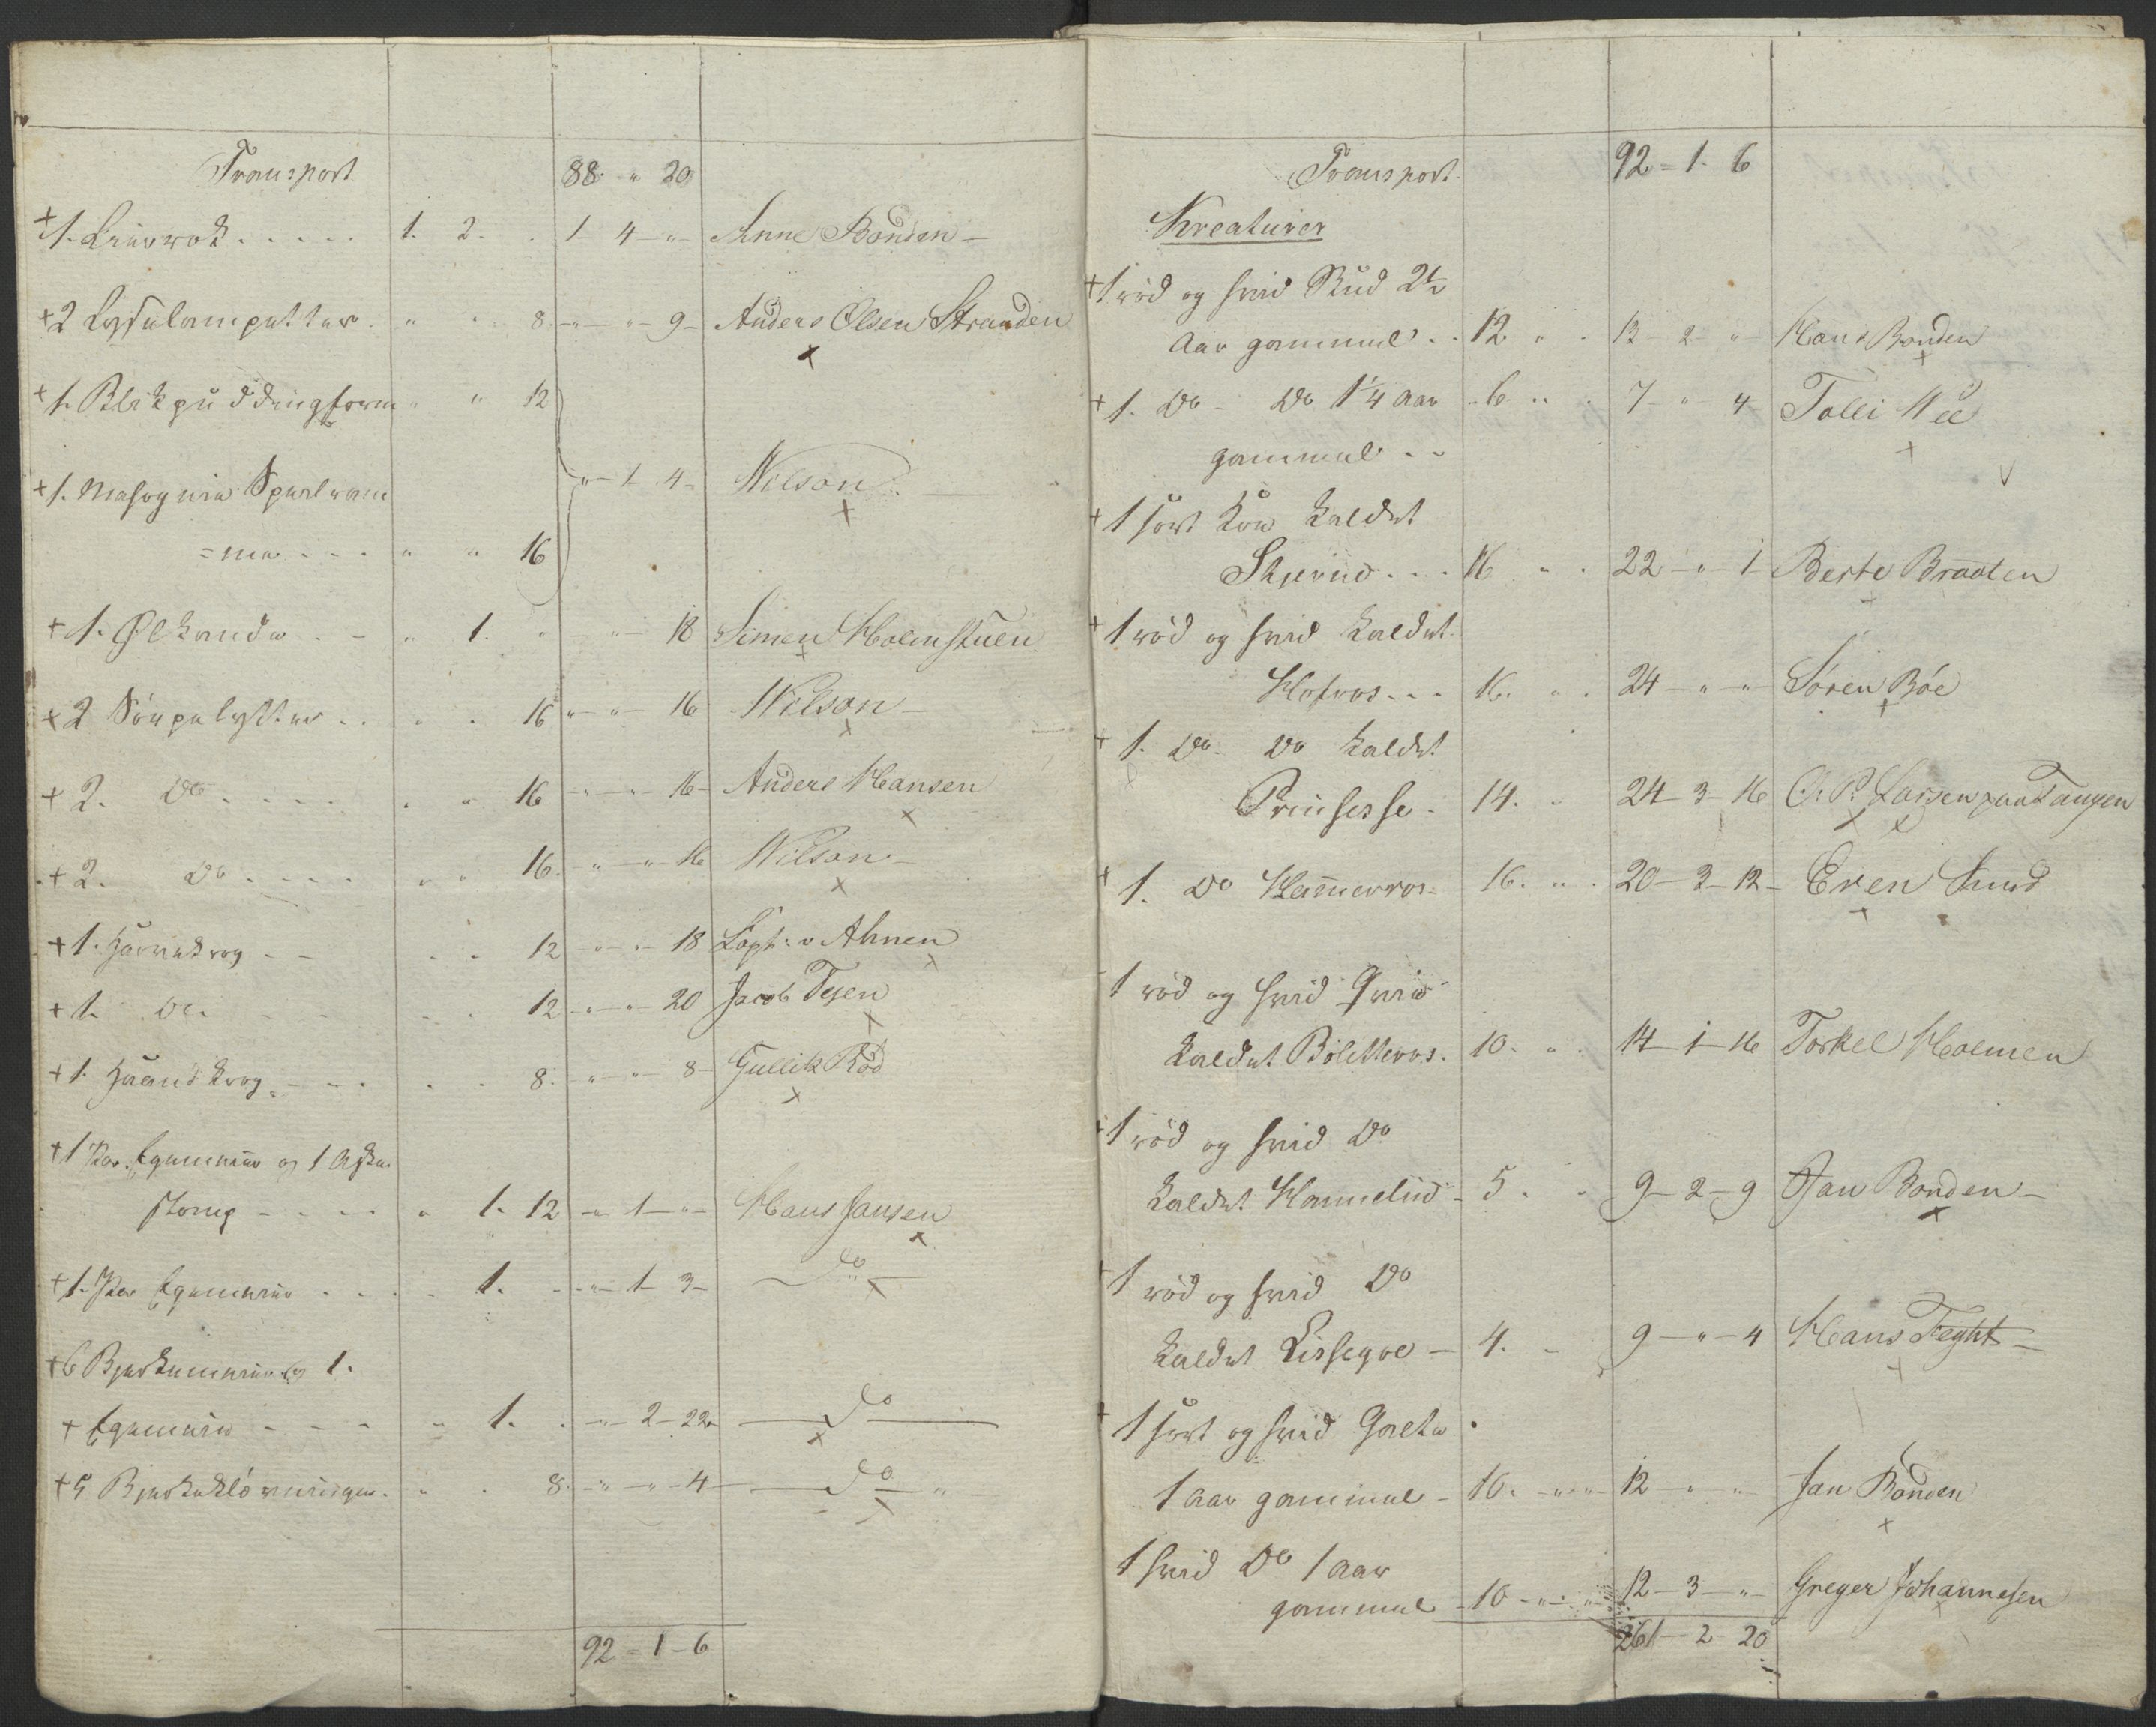 Transport 88 " 20
+1. Liinrok . . . . . 1. 2. . 1 4 " Anne Bonden
+2 Lysulampetter . " . 8. " " 9 Anders Olsen Stranden
+1. Blikpuddingform " " 12
" 1 4 Nilson
+1. Mahogni Speil
" " 16
+1. Ølkande . . " 1. " " " 18 Simen Holmstuen
+2 . . . 16 " " 16 Nilson
+2. Do . . . . . " 16 " " 16 Anders Hansen
+2. Do . . . . " " 16. " " 16 Nilson
+1. Hjørnekrog . . . . 12 " " 18 Capt: v Ahnen
+1. Do. . . 12 " " 20 Jacob Tejen
+1. Haandkrog . . . . 8. " " 8 Gullik Röd
+1 Par Egemeier og 1 Aske
stomp . . . . " 1. 12 " 1 " Hans Jansen
+1. Par Egemeier . . . 1. . " 1 3 do
+6 Bjerkemeier og 1.
+ Egemeier . . . . " 1. . " 2 22 do
+5 Bjerkekløvninger . " . 8. " " 4 do
92 = 1 - 6
Transport. 92 = 1. 6
Kreaturer
+1 röd og hvid Stud 2½
Aar gammel . . 12 " . 13 2 " Hans Bonden
+1. Do Do 1¼ Aar 6 " . 7 " 4 Tolli
gammel . .
+1 sort Koe kaldet
Skjerud . . . 16 " . 22 " 1 Berte Braaten
+1 röd og hvid kaldet
Hofros . . . 16. . . 24 " " Søren Böe
+1. Do. Do kaldet
Prinsesse . 14. . 24 3 16 O. P. Larsen paa Tangen
+1. Do Hammerros 16. " . 20 - 3 - 12 Even Lund
1 röd og hvid Qvie
kaldet Böletteros . 10. " . 14 1 16 Torkel Holmen
+1 röd og hvid Do
kaldet Hanneliid 5 . . 9 - 2 - 9 Jan Bonden
+1 röd og hvid Do
kaldet Lissegoe 4. . 9 - " - 4 Hans Feght
+1 sort og hvid Galte
1 Aar gammel 10. " " 12 " " Jan Bonden
1 hvid Do 1 Aar
gammel 10 - " " 12 - 3 - " Greger Johannesen
261 - 2 20